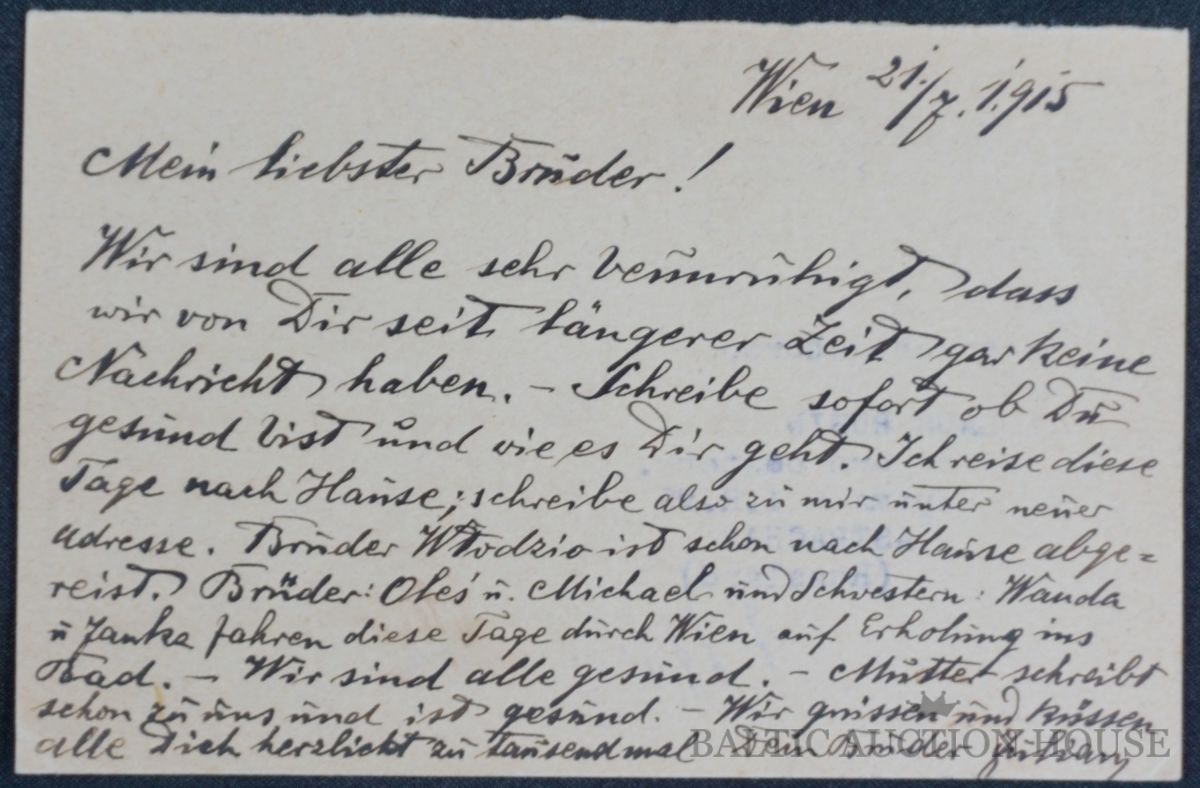 Wien 21./7. 1915
Mein liebster Bruder!
Wir sind alle sehr beunruhigt, dass
wir von Dir seit längerer Zeit gar keine
Nachricht haben. – Schreibe sofort ob Du
gesund bist und wie es Dir geht. Ich reise diese
Tage nach Hause; schreibe also zu mir unter neuer
Adresse. Bruder Włodzio ist schon nach Hause abge=
reist. Brüder: Oleś u. Michael und Schwestern: Wanda
u Janka fahren diese Tage durch Wien auf Erholung ins
Bad. – Wir sind alle gesund. – Mutter schreibt
schon zu uns und ist gesund. – Wir grüssen und küssen
alle Dich herzlicht zu tausendmal Dein Bruder
BALTIC AUCTION HOUSE